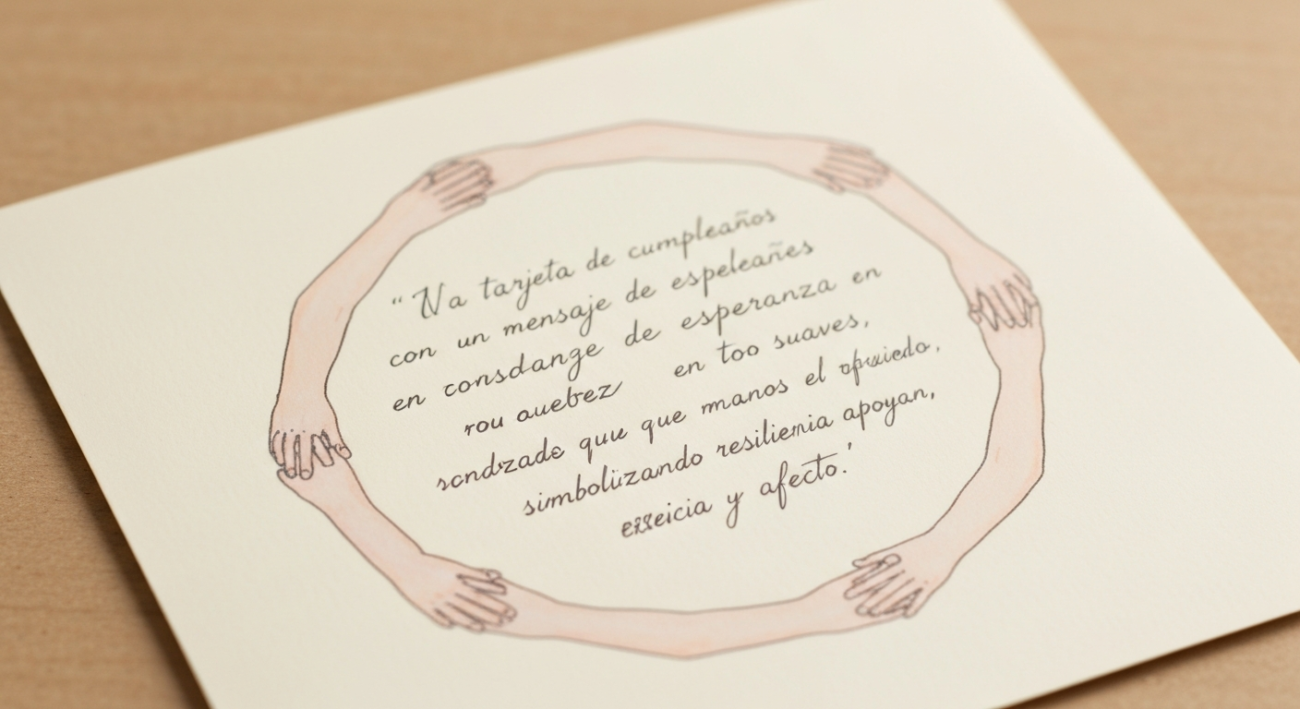 "Na tarjeta de cumpleaños
con un mensaje de espeleañes
en consdange de esperanza en
rou auebez en too suaves,
que manos el
simbolüzando resiliemia apoyan,
y afecto.'